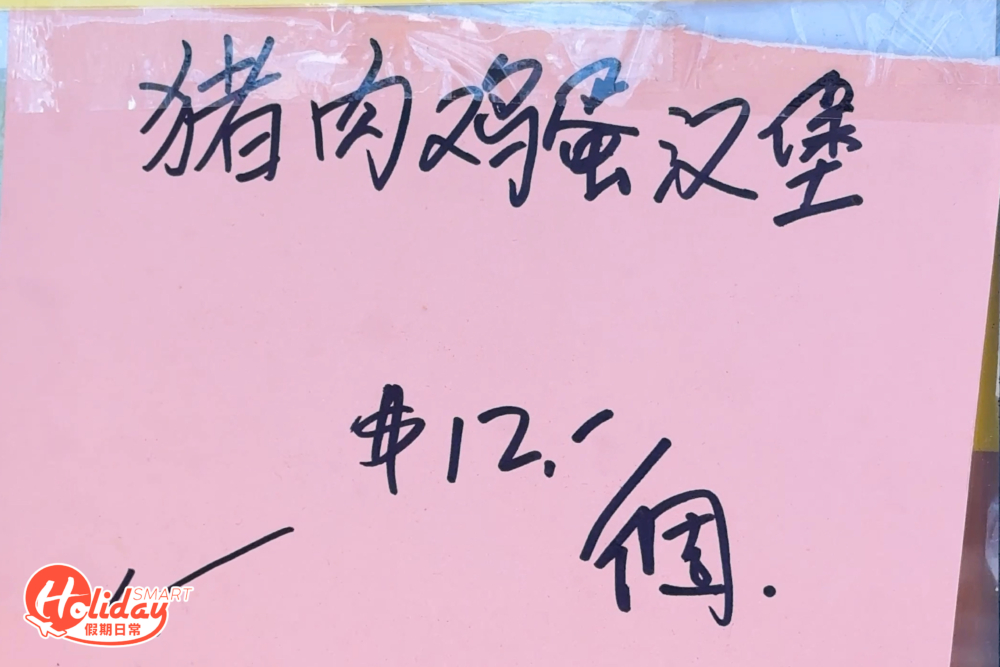 猪肉鸡蛋汉堡
$12.-
/個.
SMART
Holiday
假期日常